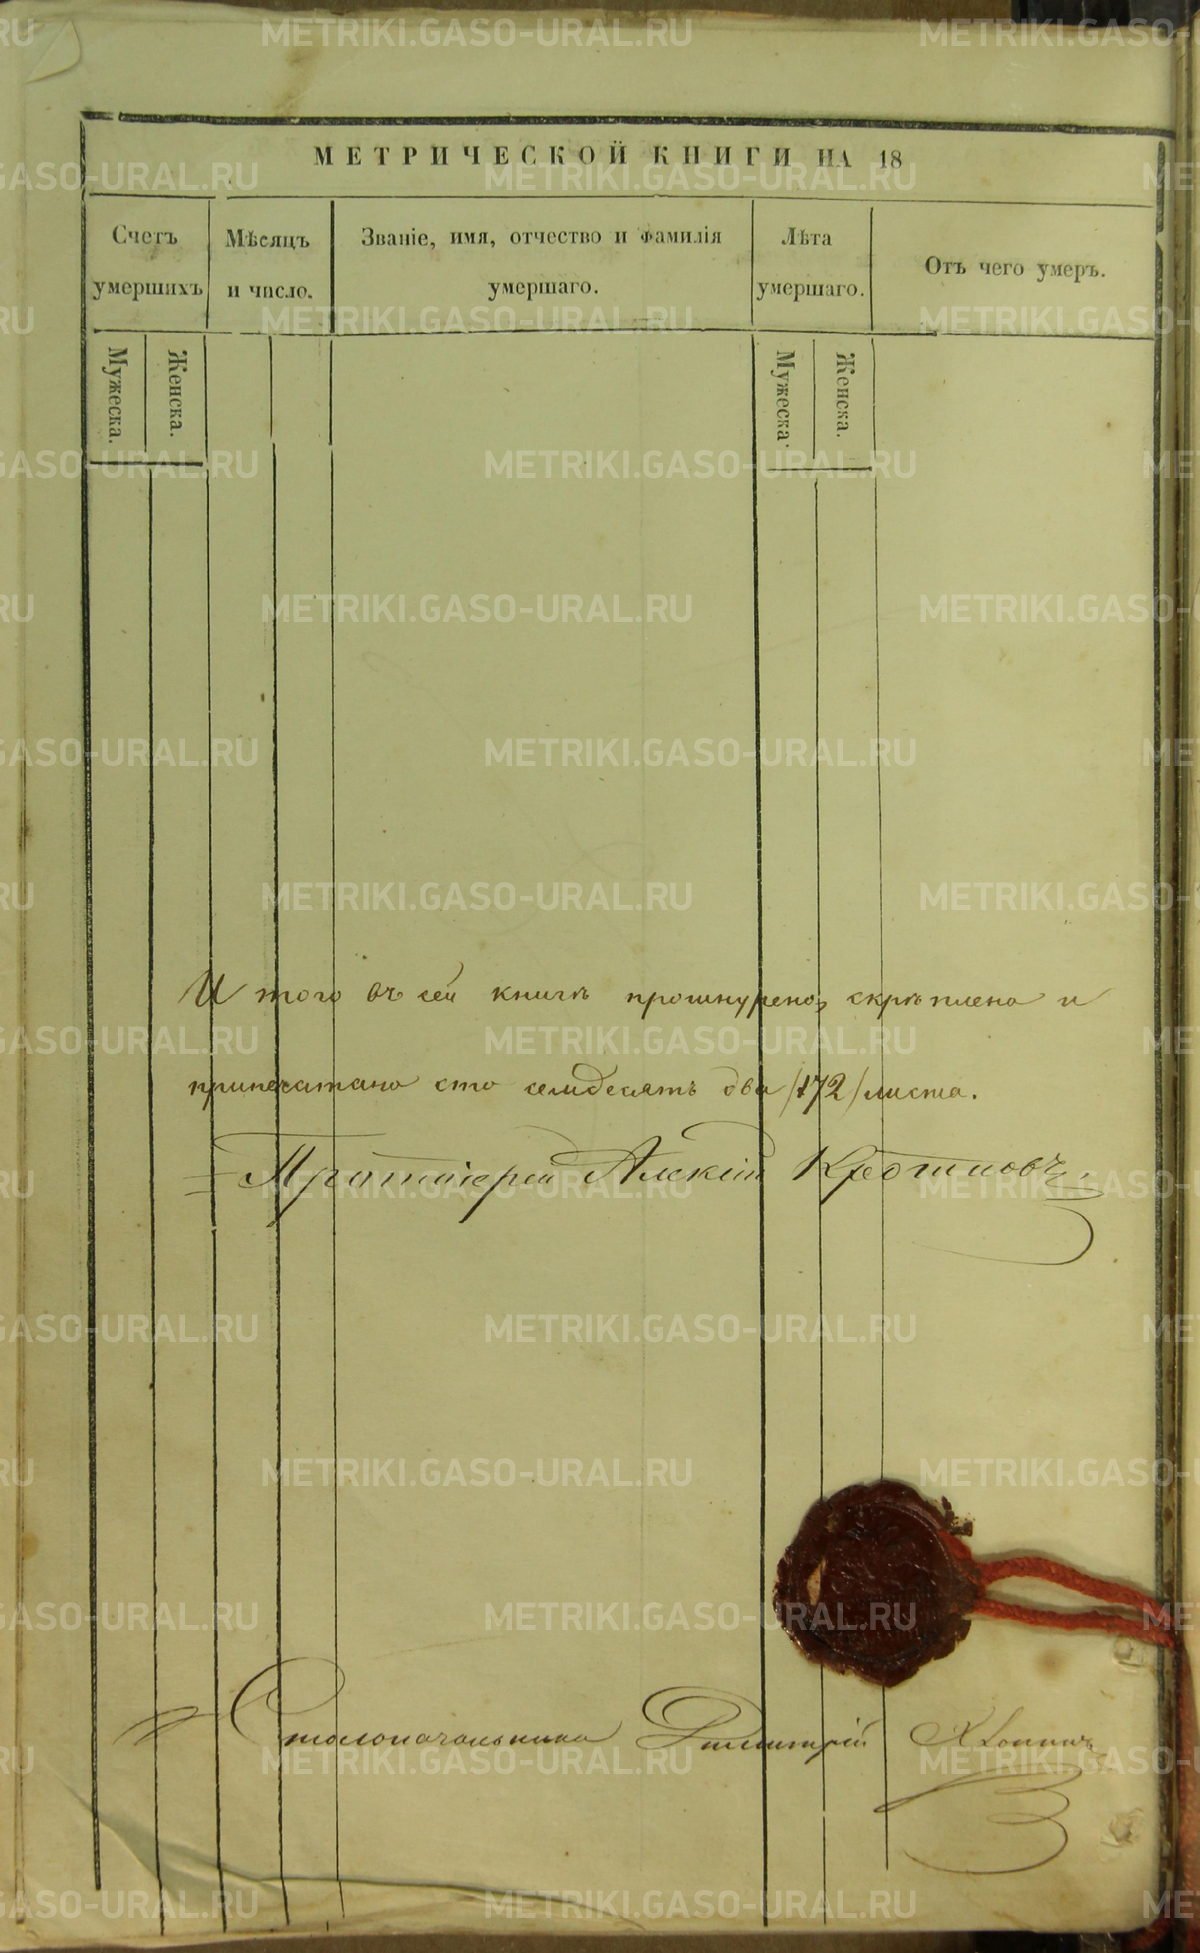 МЕТРИЧЕСКОЙ КНИГИ НА 18
Счетъ умершихъ
Мѣсяцъ и число.
Званіе, имя, отчество и фамилія умершаго.
Лѣта умершаго.
Отъ чего умеръ.
Мужеска.
Женска.
Мужеска
Женска.
Итого въ сей книгѣ прошнурено, скрѣплена и
припечатано сто семдесятъ два /172/ листа.
Протоіерей Алексій Кротковъ
Столоначальника Димитрій
METRIKI.GASO-URAL.RU